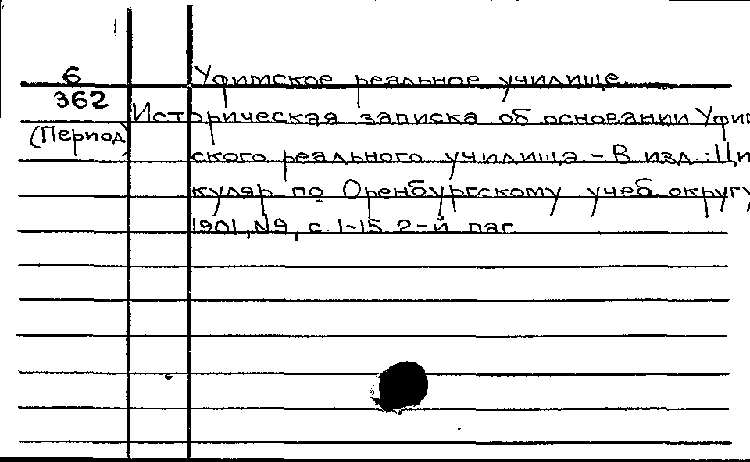 6 Уфимское реальное училище.
362
Историческая записка об основании Уфим
(Период)
ского реального училища – В изд.: Цир
куляр по Оренбургскому учеб. округу
1901, №9, с. 1-15. 2-й паг.